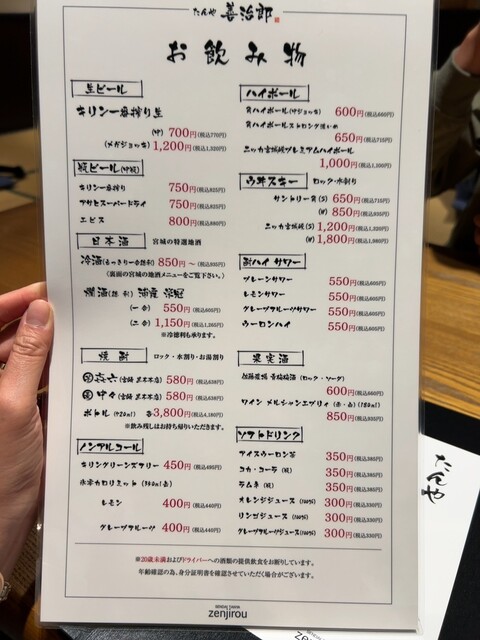 たんや 善治郎
お飲み物
生ビール
キリン一番搾り生
(中) 700円(税込770円)
(メガジョッキ) 1,200円(税込1,320円)
瓶ビール(中瓶)
キリン一番搾り 750円(税込825円)
アサヒスーパードライ 750円(税込825円)
エビス 800円(税込880円)
日本酒 宮城の特選地酒
冷酒(もっきり一合徳利) 850円〜(税込935円)
(裏面の宮城の地酒メニューをご覧下さい。)
燗酒(徳利) 浦霞 本醸
(一合) 550円(税込605円)
(二合) 1,150円(税込1,265円)
※冷徳利も承ります。
焼酎 ロック・水割り・お湯割り
580円(税込638円)
580円(税込638円)
ボトル(720ml) 各3,800円(税込4,180円)
※飲み残しはお持ち帰りいただきます。
ノンアルコール
キリングリーンズフリー 450円(税込495円)
氷零カロリミット(350ml缶)
レモン 400円(税込440円)
グレープフルーツ 400円(税込440円)
ハイボール
角ハイボール(中ジョッキ) 600円(税込660円)
角ハイボールストロング濃いめ
650円(税込715円)
ニッカ宮城峡プレミアムハイボール
1,000円(税込1,100円)
ウヰスキー ロック・水割り
サントリー角(S) 650円(税込715円)
(W) 850円(税込935円)
ニッカ宮城峡(S) 1,200円(税込1,320円)
(W) 1,800円(税込1,980円)
酎ハイ サワー
プレーンサワー 550円(税込605円)
レモンサワー 550円(税込605円)
グレープフルーツサワー 550円(税込605円)
ウーロンハイ 550円(税込605円)
果実酒
(ロック・ソーダ)
600円(税込660円)
ワイン メルシャンエブリィ(赤・白)(180ml)
850円(税込935円)
ソフトドリンク
アイスウーロン茶 350円(税込385円)
コカ・コーラ(瓶) 350円(税込385円)
ラムネ(瓶) 350円(税込385円)
オレンジジュース(100%) 300円(税込330円)
リンゴジュース(100%) 300円(税込330円)
グレープフルーツジュース(100%) 300円(税込330円)
※20歳未満およびドライバーへの酒類の提供飲食をお断りしています。
年齢確認の為、身分証明書を確認させていただく場合がございます。
SENDAI TANYA
zenjirou
たんや